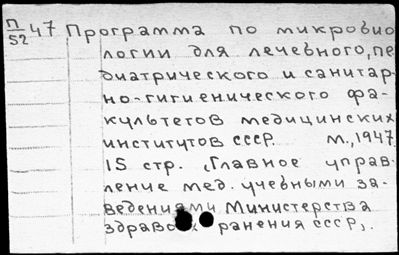 П/52 47 Программа по микробио
логии для лечебного, пе
диатрического и санитар-
но-гигиенического фа-
культетов медицинских
институтов СССР. М., 1947
15 стр. (Главное управ-
ление мед. учебными за-
ведениями Министерства
здравоохранения СССР).